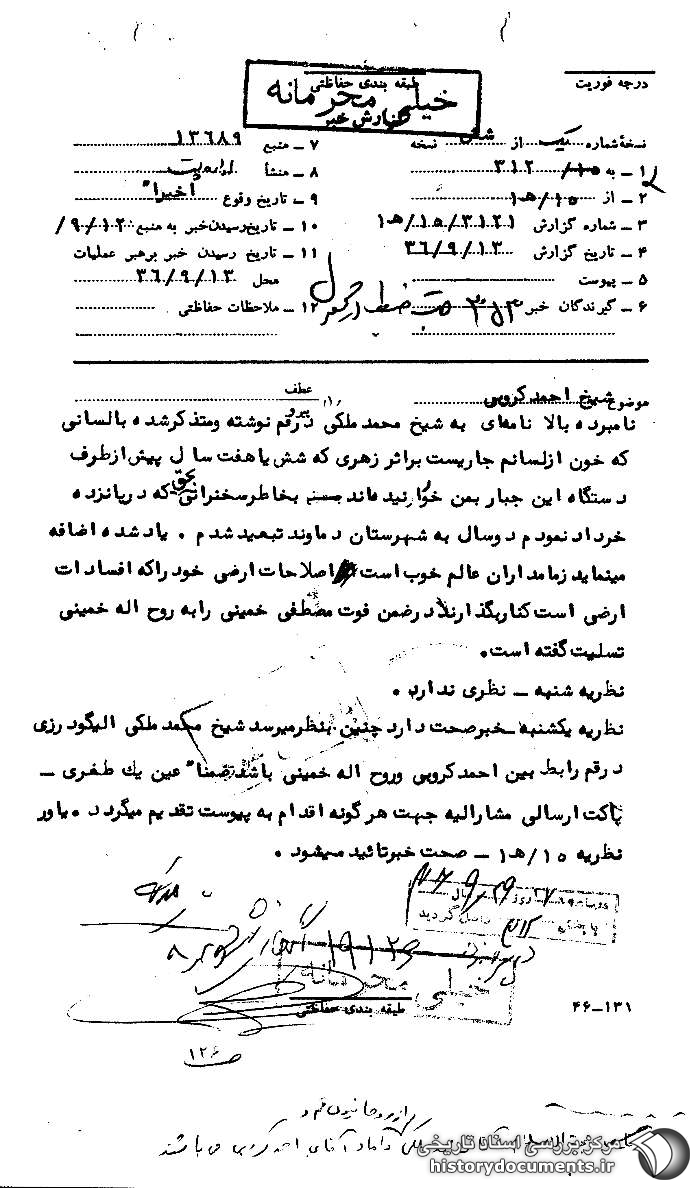 درجه فوریت
طبقه بندی حفاظتی
خیلی محرمانه
گزارش خبر
نسخهٔ شماره یک از شش نسخه
۱ – به ۳۱۲
۲ – از ۱۵/هـ۱
۳ – شماره گزارش ۳۱۲۱/۱۵/هـ۱
۴ – تاریخ گزارش ۳۶/۹/۱۳
۵ – پیوست
۶ – گیرندگان خبر
۷ – منبع ۱۳۶۸۹
۸ – منشأ
۹ – تاریخ وقوع اخیراً
۱۰ – تاریخ رسیدن خبر به منبع ۹/۱۲/
۱۱ – تاریخ رسیدن خبر برهبر عملیات
محل ۳۶/۹/۱۳
۱۲ – ملاحظات حفاظتی
موضوع شیخ احمد کروبی
عطف
پیرو
نامبرده بالا نامه‌ای به شیخ محمد ملکی درقم نوشته ومتذکرشده بالسانی
که خون ازلسانم جاریست براثر زهری که شش یاهفت سال پیش ازطرف
دستگاه این جبار بمن خورانیده‌اند بخاطرسخنرانی بحق که درپانزده
خرداد نمودم دوسال به شهرستان دماوند تبعید شدم . یاد شده اضافه
مینماید زمامداران عالم خوب است اصلاحات ارضی خود راکه افسادات
ارضی است کناربگذارند درضمن فوت مصطفی خمینی رابه روح اله خمینی
تسلیت گفته است.
نظریه شنبه – نظری ندارد .
نظریه یکشنبه – خبرصحت دارد چنین بنظرمیرسد شیخ محمد ملکی الیگودرزی
درقم رابط بین احمد کروبی وروح اله خمینی باشد ضمناً عین یك طغری –
پاکت ارسالی مشارالیه جهت هرگونه اقدام به پیوست تقدیم میگردد . یاور
نظریه ۱۵/هـ۱ – صحت خبرتائید میشود .
خیلی محرمانه
طبقه بندی حفاظتی
۴۶–۱۳۱
۱۲۶
از روحانیون قم و
داماد آقای احمد کروبی می باشند
مرکز بررسی اسناد تاریخی
historydocuments.ir